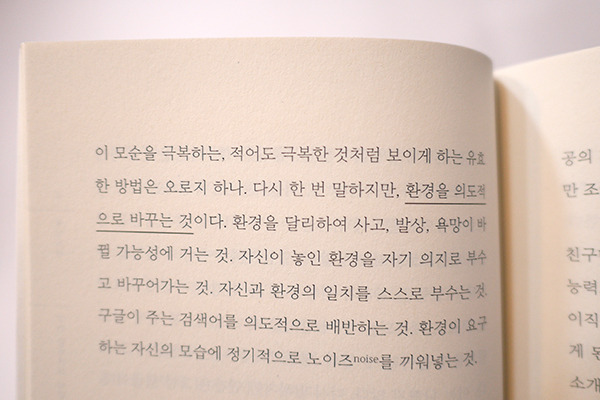 이 모순을 극복하는, 적어도 극복한 것처럼 보이게 하는 유효
한 방법은 오로지 하나. 다시 한 번 말하지만, 환경을 의도적
으로 바꾸는 것이다. 환경을 달리하여 사고, 발상, 욕망이 바
뀔 가능성에 거는 것. 자신이 놓인 환경을 자기 의지로 부수
고 바꾸어가는 것. 자신과 환경의 일치를 스스로 부수는 것.
구글이 주는 검색어를 의도적으로 배반하는 것. 환경이 요구
하는 자신의 모습에 정기적으로 노이즈noise를 끼워넣는 것.
공의
만 조
친구
능력
이직
게 된
소개